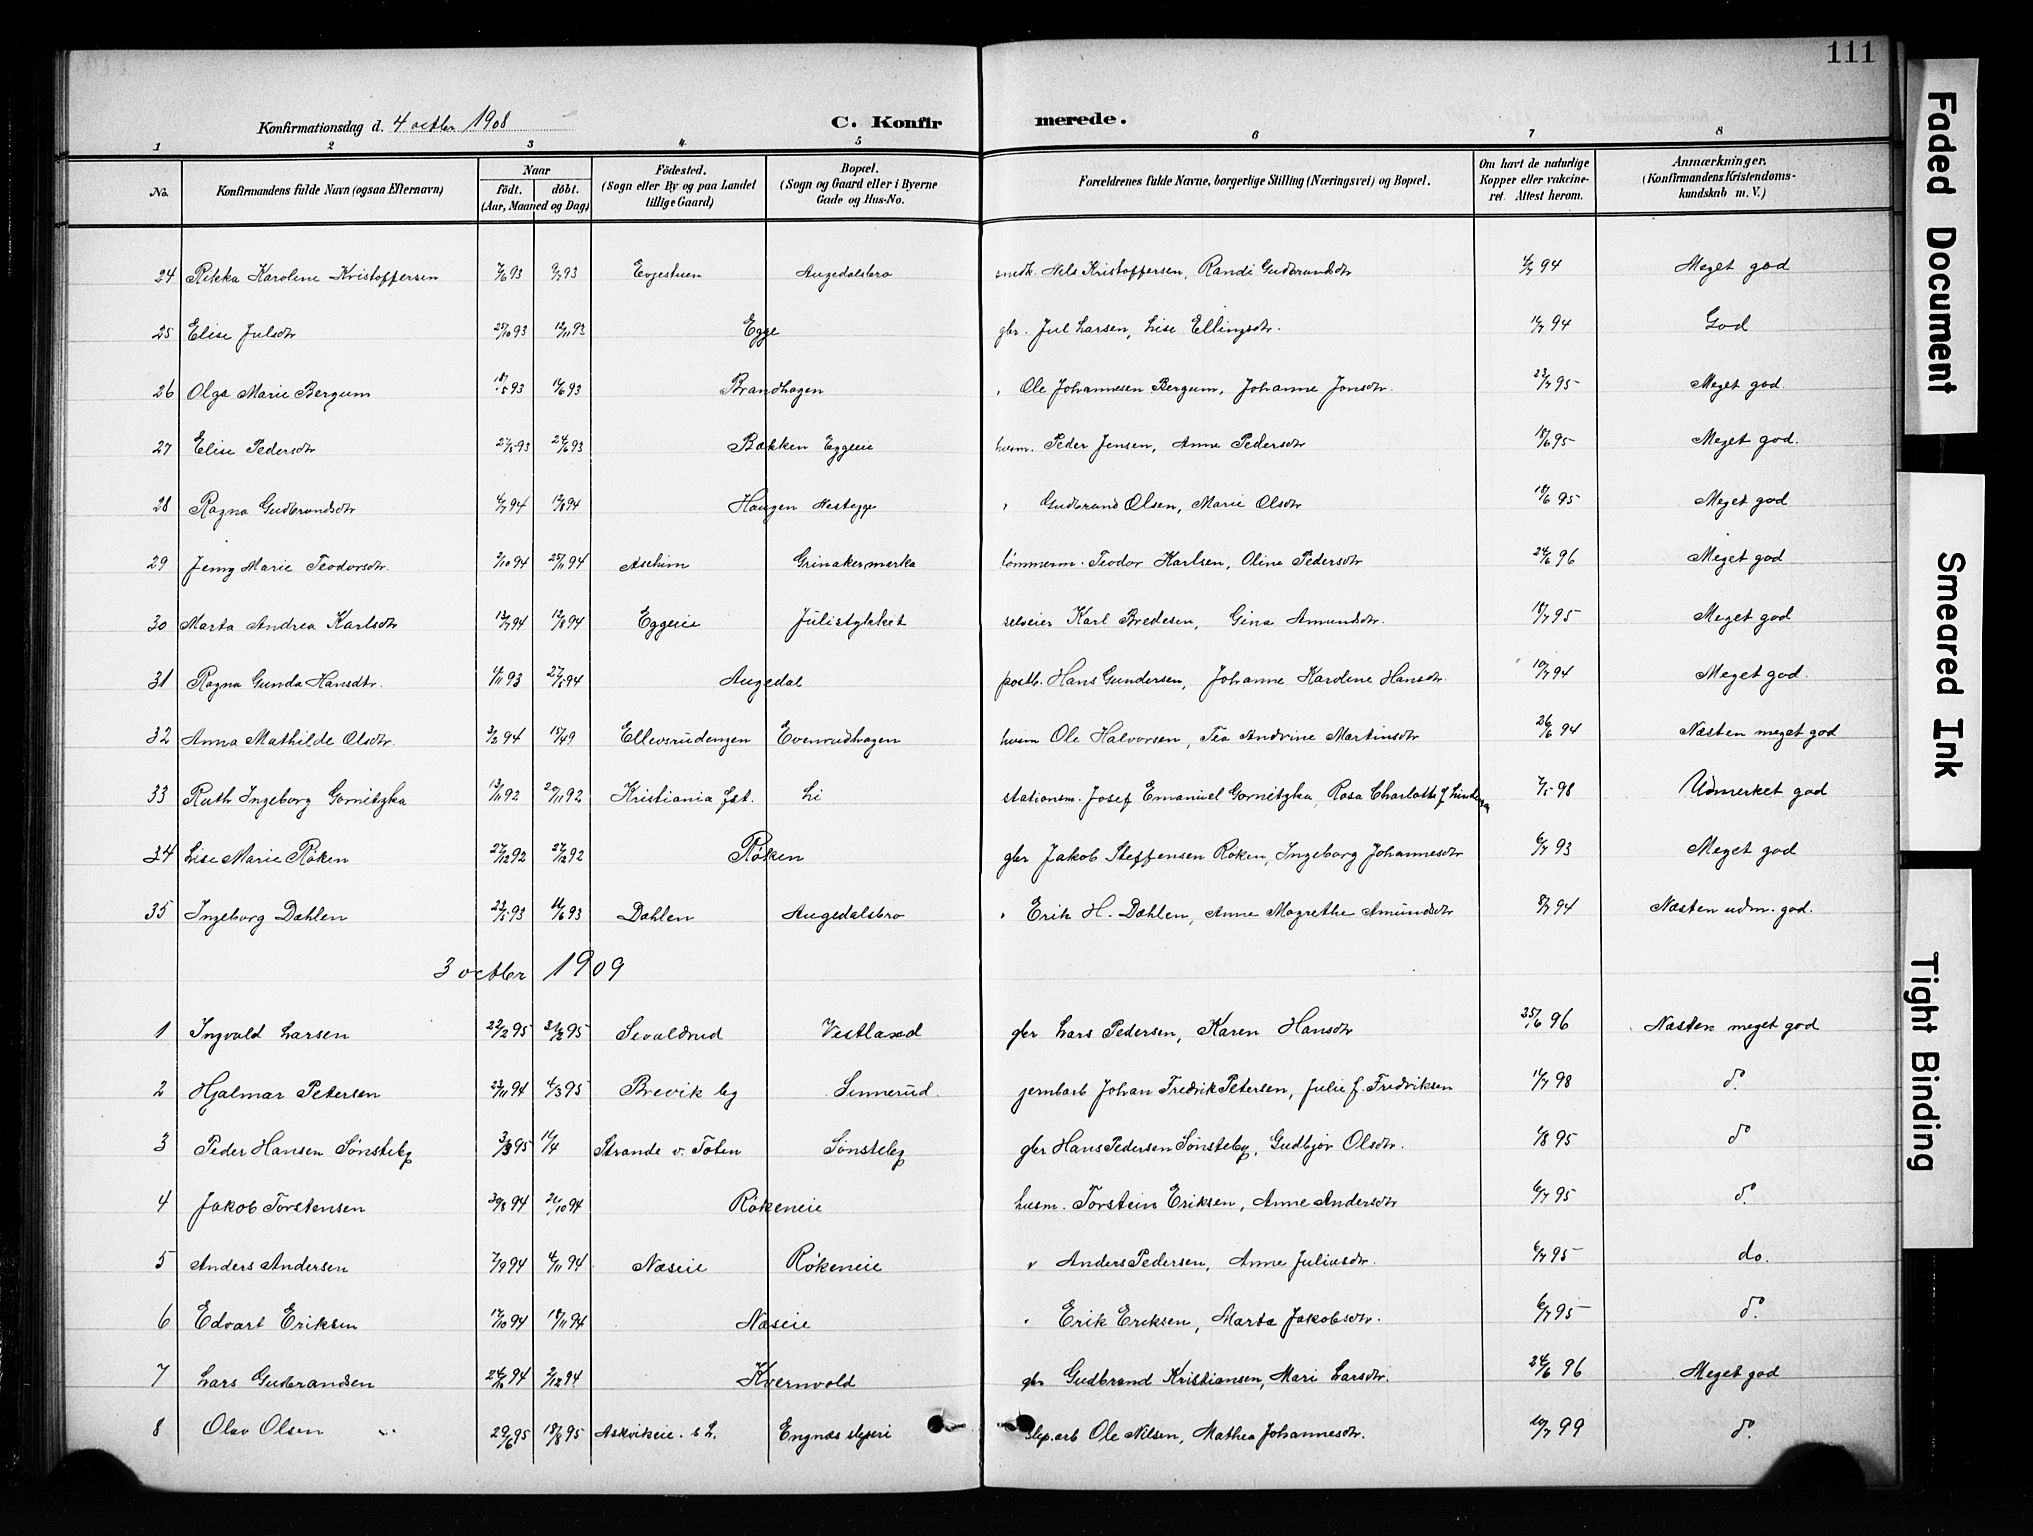 111
Konfirmationsdag d. 4 octbr 1908 C. Konfirmerede.
1 2 3 4 5 6 7 8
No. Konfirmandens fulde Navn (ogsaa Efternavn) Naar født. døbt. (Aar, Maaned og Dag) Fødested. (Sogn eller By og paa Landet tillige Gaard) Bopæl. (Sogn og Gaard eller i Byerne Gade og Hus-No. Forældrenes fulde Navne, borgerlige Stilling (Næringsvei) og Bopæl. Om havt de naturlige Kopper eller vakcineret. Attest herom. Anmærkninger. (Konfirmandens Kristendomskundskab m. V.)
24 Rikka Karoline Kristoffersen 7/6 93 9/7 93 Evjestuen Augedalsbro snedk. Nils Kristoffersen, Randi Gudbrandsdtr 4/7 94 Meget god
25 Elise Julsdtr 25/10 93 12/11 93 Egge gbr. Jul Larsen, Lise Ellingsdtr. 11/7 94 God
26 Olga Marie Bergum 18/5 93 11/6 93 Brandhagen " Ole Johannesen Bergum, Johanne Jonsdtr. 23/7 95 Meget god.
27 Elise Pedersdtr 21/5 93 24/6 93 Bakken Eggeie husm. Peder Jensen, Anne Pedersdtr 18/6 95 Meget god.
28 Ragna Gudbrandsdtr 4/7 94 12/8 94 Haugen Nestegge " Gudbrand Olsen, Marie Olsdtr 18/6 95 Meget god
29 Jenny Marie Teodorsdtr. 2/10 94 25/11 94 Aschim Grinakermarka tømmerm. Teodor Karlsen, Oline Pedersdtr 24/6 96 Meget god
30 Marta Andrea Karlsdtr 13/7 94 12/8 94 Eggeie Julistykket selveier Karl Bredesen, Gina Amundsdtr. 18/7 95 Meget god
31 Ragna Gunda Hansdtr. 4/11 93 27/5 94 Augedal postb. Hans Gundersen, Johanne Karoline Hansdtr. 10/7 94 Meget god.
32 Anna Mathilde Olsdtr. 3/2 94 15/4 9 Ellevsrudengen Evenrudhagen husm Ole Halvorsen, Tea Andrine Martinsdtr 26/6 94 Næsten meget god
33 Ruth Ingeborg Gornitzka 13/11 92 20/11 92 Kristiania fst. Li stationsm. Josef Emanuel Gornitzka, Rosa Charlotte f. 7/5 98 Udmerket god
34 Lise Marie Røken 27/12 92 27/12 92 Røken gbr Jakob Steffensen Røken, Ingeborg Johannesdtr 6/7 93 Meget god
35 Ingeborg Dæhlen 23/5 93 11/6 93 Dæhlen Augedalsbro " Erik H. Dæhlen, Anne Magrethe Amundsdtr 8/7 94 Næsten udm. god.
3 octbr 1909
1 Ingvald Larsen 22/2 95 31/2 95 Sevaldrud Vestland gbr Lars Pedersen, Karen Hansdtr 25/6 96 Næsten meget god
2 Hjalmar Petersen 23/11 94 4/3 95 Brevik by Sinnerud. jernbarb Johan Fredrik Petersen, Julie f. Fredriksen 11/7 98 do
3 Peder Hansen Sønsteby 3/3 95 11/4 Strande v. Toten Sønsteby gbr Hans Pedersen Sønsteby, Gudbjør Olsdtr. 1/8 95 do
4 Jakob Torstensen 30/8 94 21/10 94 Røkeneie husm. Torstein Eriksen, Anne Andersdtr 6/7 95 do.
5 Anders Andersen 7/9 94 4/11 94 Næseie Røkeneie " Anders Pedersen, Anne Juliusdtr. 6/7 95 do.
6 Edvart Eriksen 17/10 94 18/11 94 Næseie " Erik Eriksen, Marta Jakobsdtr. 6/7 95 do.
7 Lars Gudbrandsen 24/10 94 2/12 94 Kvernvold gbr Gudbrand Kristiansen, Mari Larsdtr. 24/6 96 Meget god
8 Olav Olsen 29/6 95 18/8 95 Askvikeie. s L. Engnæs sliperi slip.arb Ole Nilsen, Mathea Johannesdtr. 10/7 99 do.
Faded Document
Smeared Ink
Tight Binding